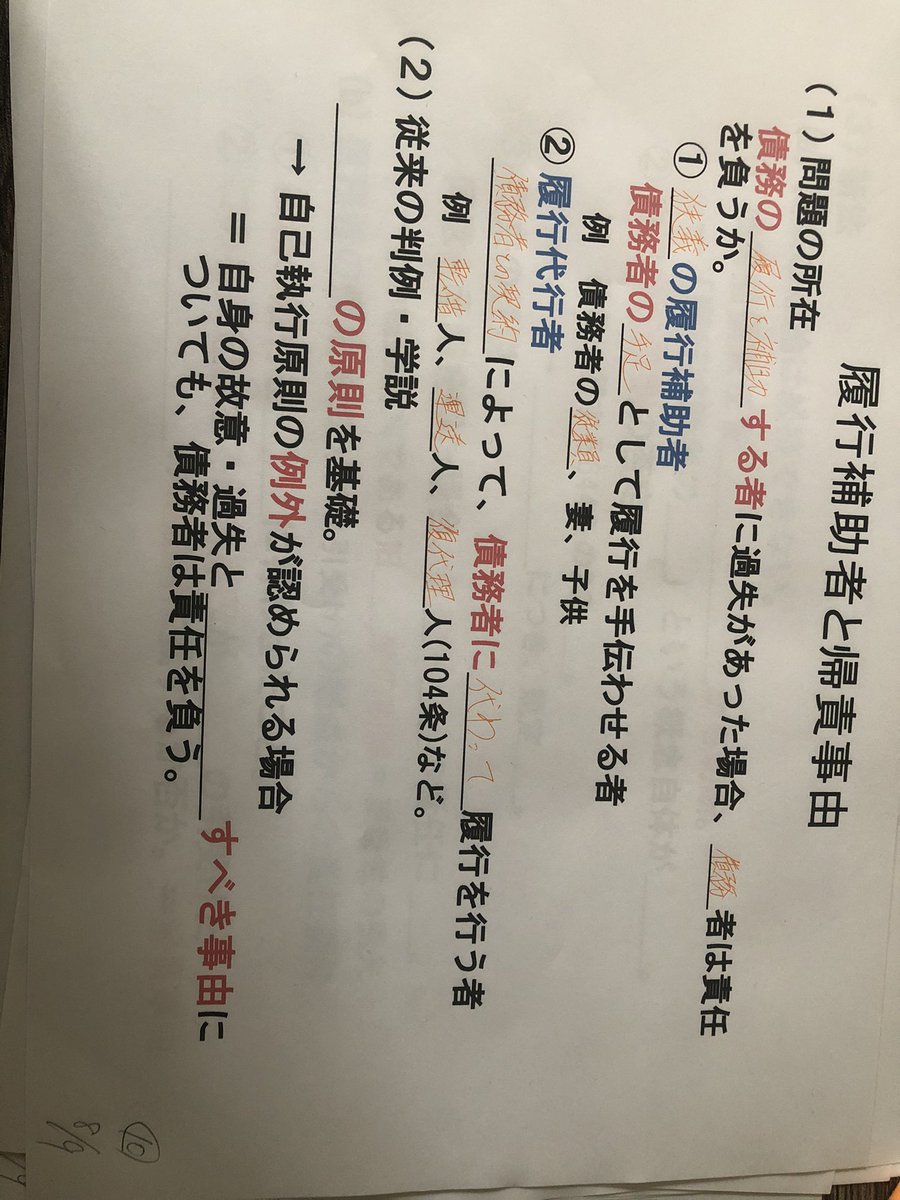 履行補助者と帰責事由
(1)問題の所在
債務の 履行を補助 する者に過失があった場合、 債務 者は責任
を負うか。
① 狭義 の履行補助者
債務者の 手足 として履行を手伝わせる者
例 債務者の 従業員、妻、子供
② 履行代行者
債務者との契約 によって、債務者に 代わって 履行を行う者
例 転借人、運送人、復代理人(104条)など。
(2)従来の判例・学説
の原則を基礎。
→ 自己執行原則の例外が認められる場合
= 自身の故意・過失と すべき事由に
ついても、債務者は責任を負う。
⑩
8/9